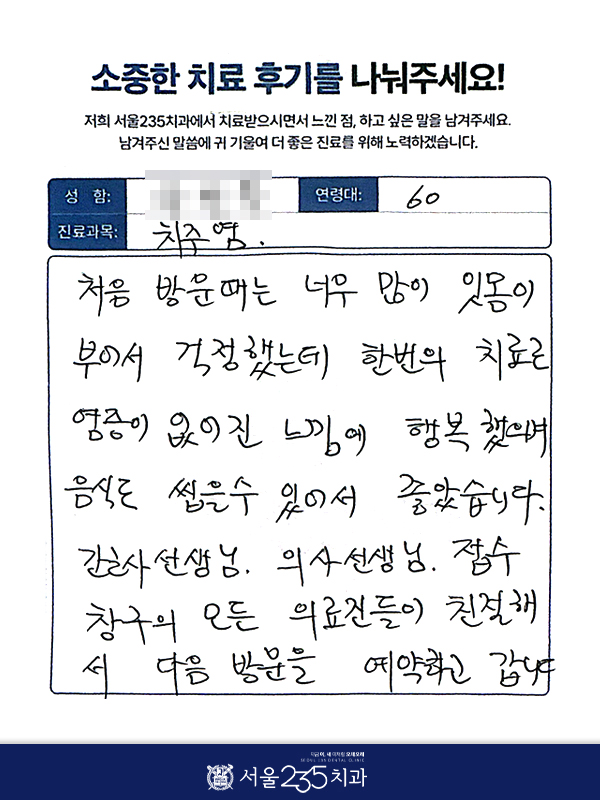 소중한 치료 후기를 나눠주세요!
저희 서울235치과에서 치료받으시면서 느낀 점, 하고 싶은 말을 남겨주세요.
남겨주신 말씀에 귀 기울여 더 좋은 진료를 위해 노력하겠습니다.
성 함: 연령대: 60
진료과목: 치주염.
처음 방문때는 너무 많이 잇몸이
부어서 걱정했는데 한번의 치료로
염증이 없어진 느낌에 행복했으며
음식도 씹을수 있어서 좋았습니다.
간호사선생님. 의사선생님. 접수
창구의 모든 의료진들이 친절해
서 다음 방문을 예약하고 갑니다
서울235치과